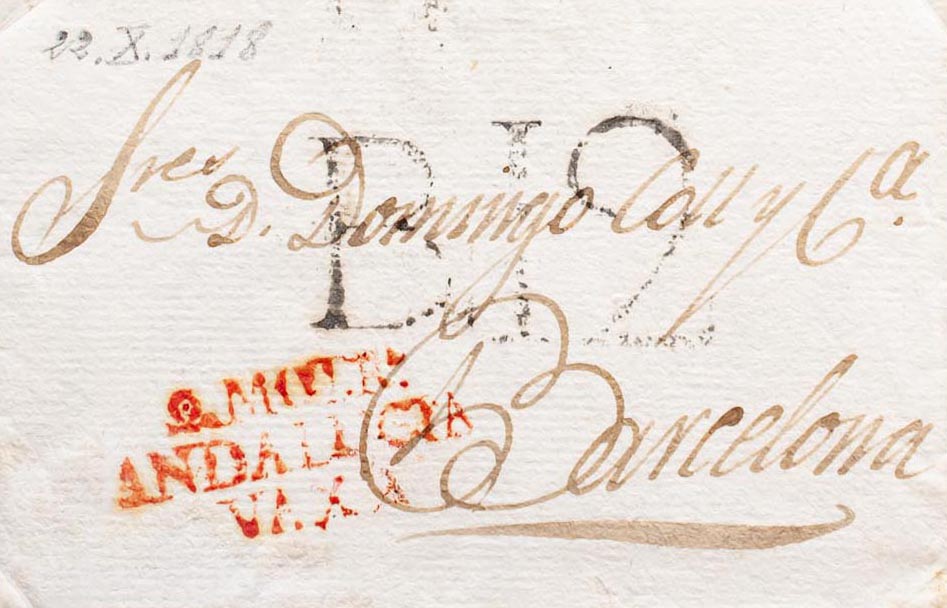 22.X.1818
Sres D. Domingo Coll y Cª.
R 12
Barcelona
ANDALUCIA